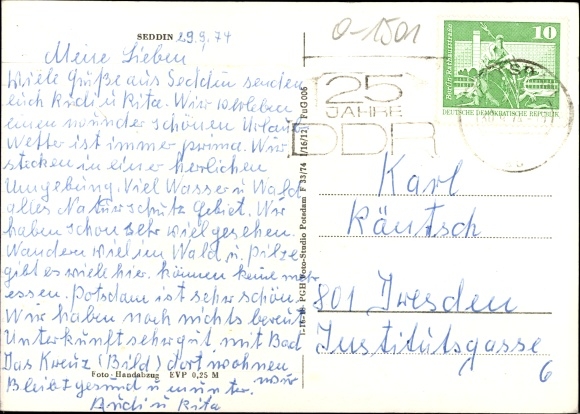 SEDDIN 29.9.74
Meine Lieben
Viele Grüße aus Seddin senden
euch Rudi u Rita. Wir verleben
einen wunder schönen Urlaub
Wetter ist immer prima. Wir
stecken in einer herlichen
Umgebung. Viel Wasser u Wald
alles Naturschutz Gebiet. Wir
haben schon sehr viel gesehen.
Wandern viel im Wald u. Pilze
gibt es viele hier. können keine mehr
essen. Potsdam ist sehr schön.
Wir haben noch nichts bereut
Unterkunft sehr gut mit Bad
Das Kreuz (Bild) dort wohnen
wir
Bleibt gesund u munter.
Rudi u Rita
Foto-Handabzug EVP 0,25 M
1-16-18 PGH Foto-Studio Potsdam F 33/74 1/16/12) FuG 006
0-1501
10
Berlin, Rathausstraße
DEUTSCHE DEMOKRATISCHE REPUBLIK
25
JAHRE
DDR
Karl
Räntsch
801 Dresden
Institutsgasse
6